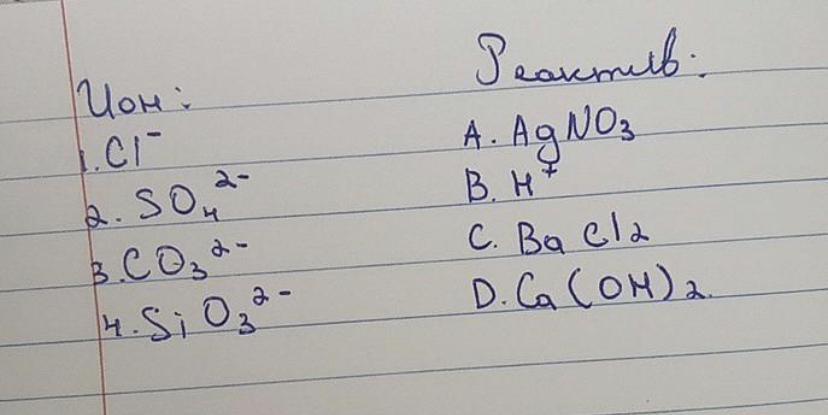 Ион:
1. Cl⁻
2. SO₄²⁻
3. CO₃²⁻
4. SiO₃²⁻
Реактив:
A. AgNO₃
B. H⁺
C. BaCl₂
D. Ca(OH)₂.